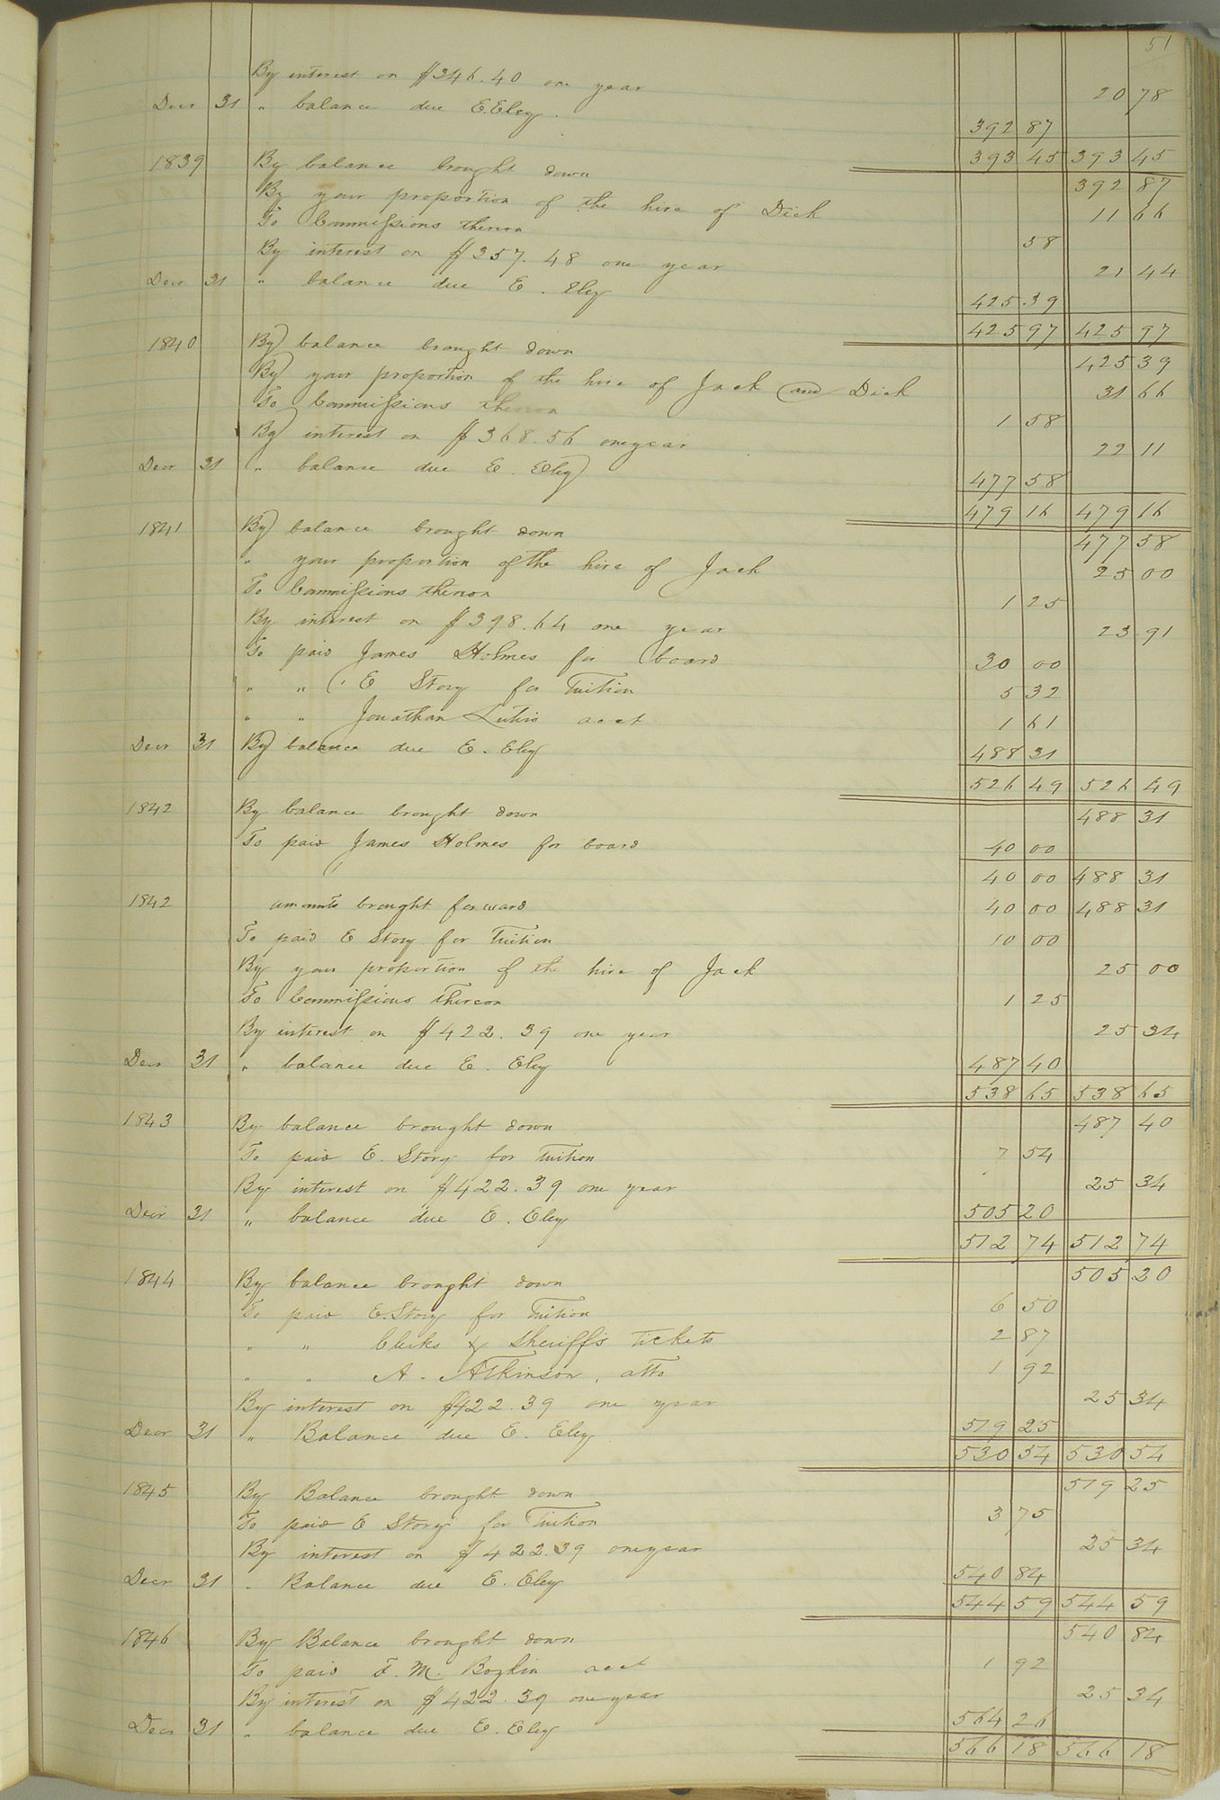 51
By interest on $346.40 one year 20 78
Decr 31 " balance due E. Eley. 392 87
393 45 393 45
1839 By balance brought down 392 87
By your proportion of the hire of Dick 11 66
To Commissions thereon 58
By interest on $357.48 one year 21 44
Decr 31 " balance due E. Eley 425 39
425 97 425 97
1840 By balance brought down 425 39
By your proportion of the hire of Jack and Dick 31 66
To Commissions thereon 1 58
By interest on $368.56 one year 22 11
Decr 31 " balance due E. Eley 477 58
479 16 479 16
1841 By balance brought down 477 58
" your proportion of the hire of Jack 25 00
To Commissions thereon 1 25
By interest on $398.64 one year 23 91
To paid James Holmes for board 30 00
" " E Story for Tuition 5 32
" " Jonathan acct 1 61
Decr 31 By balance due E. Eley 488 31
526 49 526 49
1842 By balance brought down 488 31
To paid James Holmes for board 40 00
40 00 488 31
1842 amounts brought forward 40 00 488 31
To paid E Story for Tuition 10 00
By your proportion of the hire of Jack 25 00
To Commissions thereon 1 25
By interest on $422.39 one year 25 34
Decr 31 " balance due E. Eley 487 40
538 65 538 65
1843 By balance brought down 487 40
To paid E. Story for Tuition 7 54
By interest on $422.39 one year 25 34
Decr 31 " balance due E. Eley 505 20
512 74 512 74
1844 By balance brought down 505 20
To paid E. Story for Tuition 6 50
" " Clerks & Sheriffs Tickets 2 87
" " A. Atkinson, atto 1 92
By interest on $422.39 one year 25 34
Decr 31 " Balance due E. Eley 519 25
530 54 530 54
1845 By Balance brought down 519 25
To paid E Story for Tuition 3 75
By interest on $422.39 one year 25 34
Decr 31 " Balance due E. Eley 540 84
544 59 544 59
1846 By Balance brought down 540 84
To paid F. M. acct 1 92
By interest on $422.39 one year 25 34
Decr 31 " balance due E. Eley 564 26
566 18 566 18